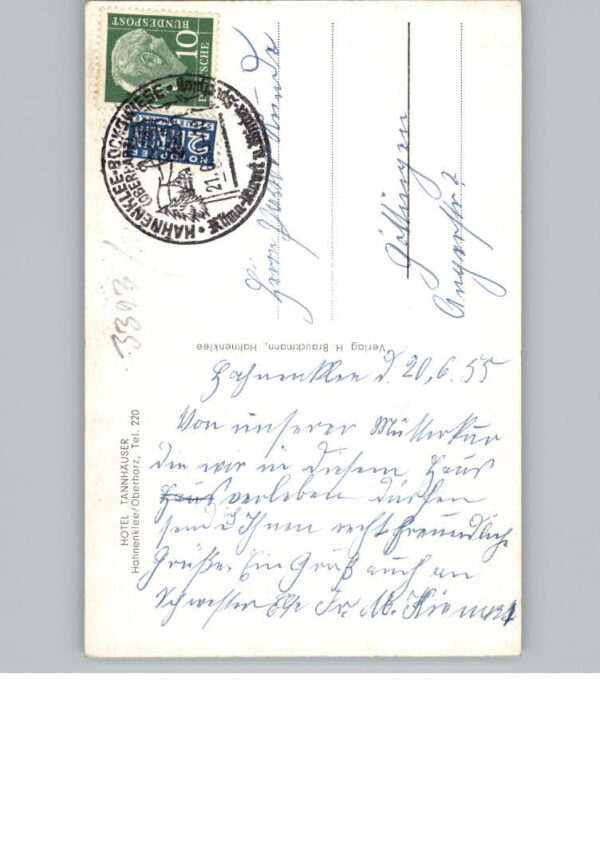 Hahnenklee d. 20.6.55
Von unserer Mütterkur
die wir in diesem Haus
Haus verleben dürfen
send ich Ihnen recht freundliche
Grüße. Ein Gruß auch an
Schwester Else Fr. M.
Herrn
Göttingen
Angerstr.
HOTEL TANNHÄUSER
Hahnenklee/Oberharz, Tel. 220
Verlag H. Brauckmann, Hahnenklee
3393
DEUTSCHE
BUNDESPOST
10
2
NOTOPFER
HAHNENKLEE-BOCKSWIESE
(OBERHARZ)
21.6.